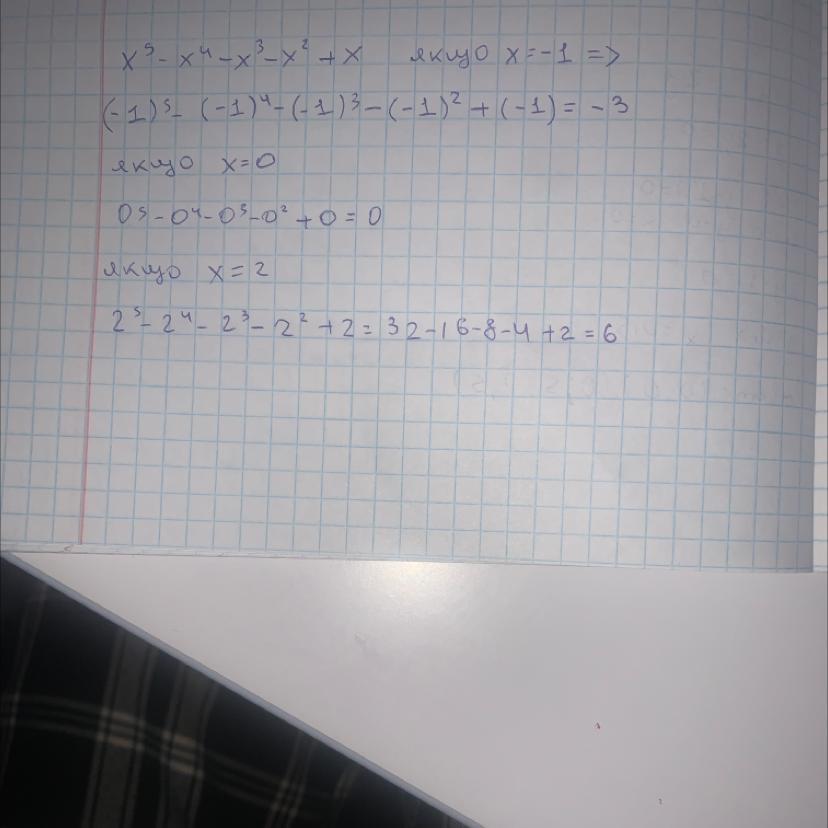 x⁵ - x⁴ - x³ - x² + x якщо x = -1 =>
(-1)⁵ - (-1)⁴ - (-1)³ - (-1)² + (-1) = -3
якщо x = 0
0⁵ - 0⁴ - 0³ - 0² + 0 = 0
якщо x = 2
2⁵ - 2⁴ - 2³ - 2² + 2 = 32 - 16 - 8 - 4 + 2 = 6